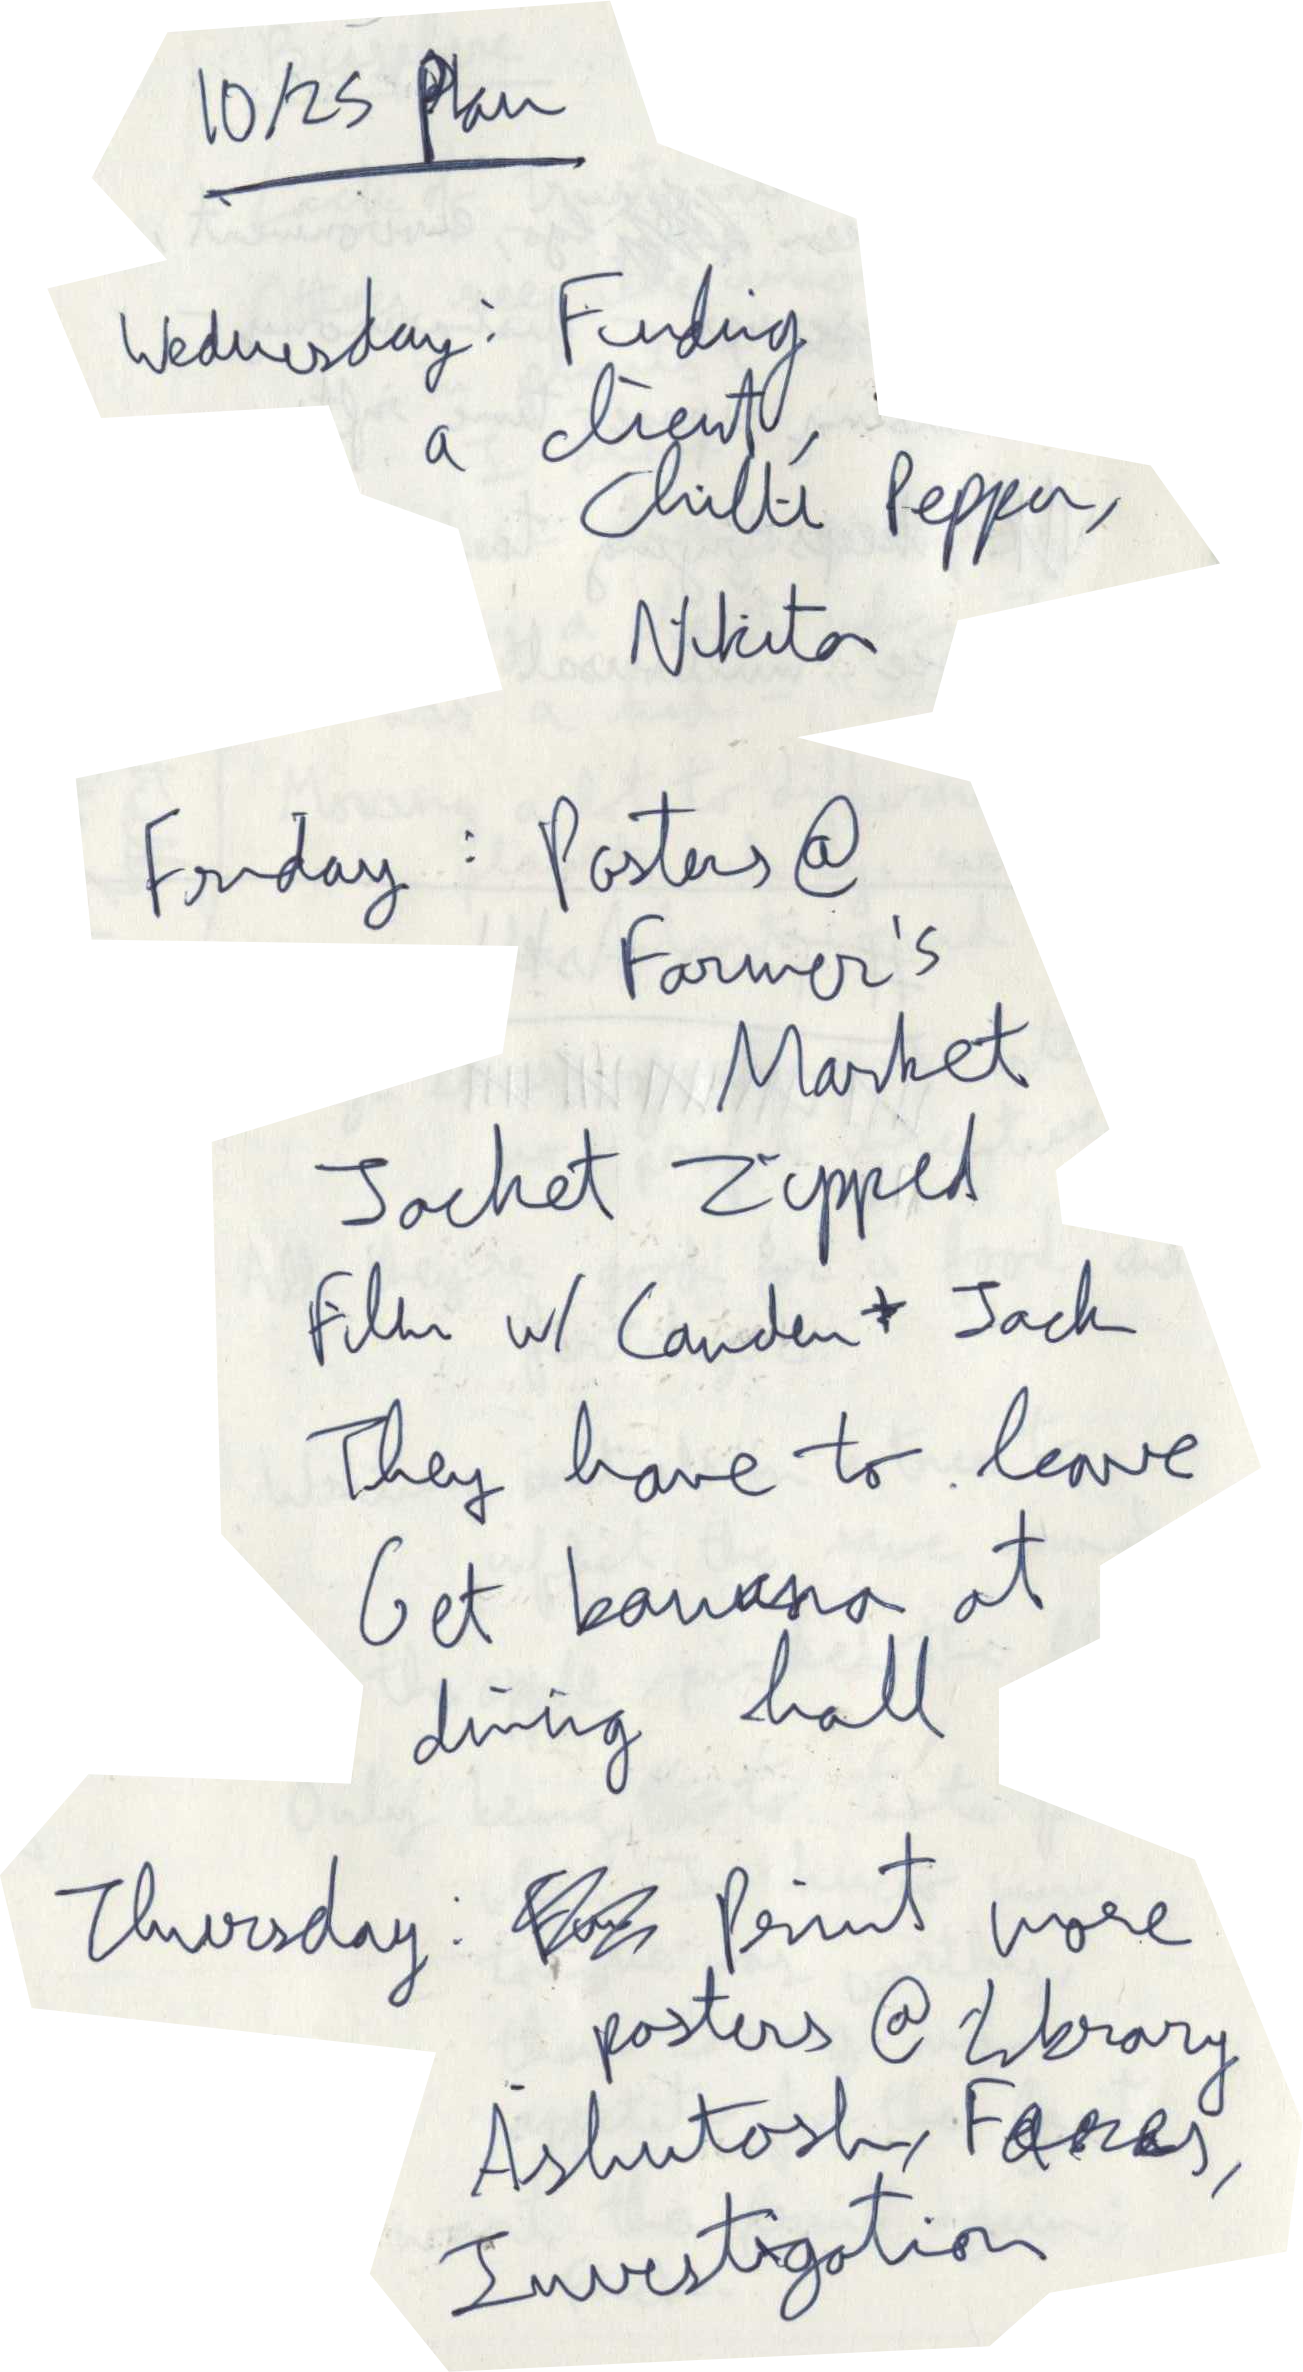 10/25 Plan
Wednesday: Finding
a client,
Chilli Pepper,
Nikita
Friday: Posters @
Farmer's
Market
Jacket Zipped
Film w/ Camden + Jack
They have to leave
Get banana at
dining hall
Thursday: Print more
posters @ Library
Ashutosh,
Investigation